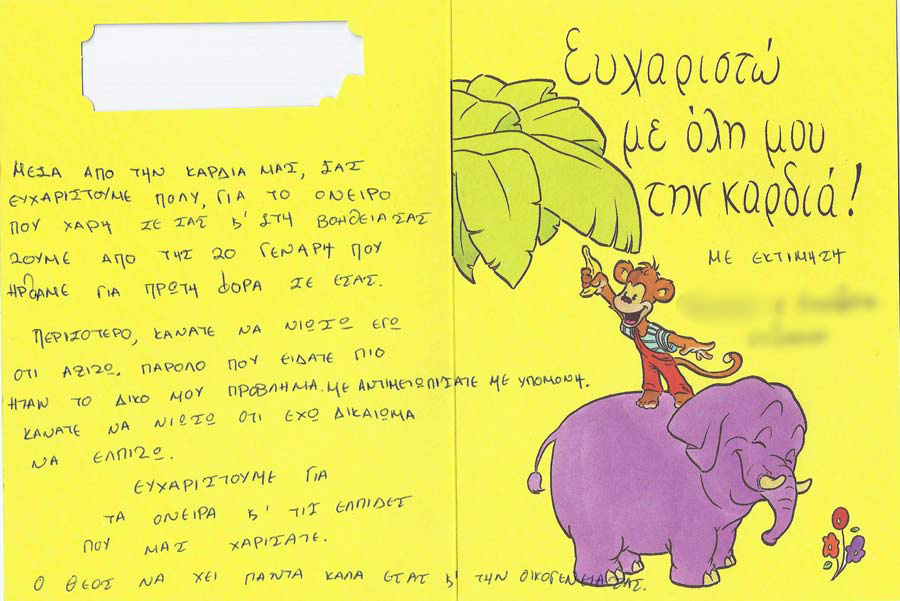 ΜΕΣΑ ΑΠΟ ΤΗΝ ΚΑΡΔΙΑ ΜΑΣ, ΣΑΣ
ΕΥΧΑΡΙΣΤΟΥΜΕ ΠΟΛΥ, ΓΙΑ ΤΟ ΟΝΕΙΡΟ
ΠΟΥ ΧΑΡΗ ΣΕ ΣΑΣ Κ' ΣΤΗ ΒΟΗΘΕΙΑ ΣΑΣ
ΖΟΥΜΕ ΑΠΟ ΤΗΣ 20 ΓΕΝΑΡΗ ΠΟΥ
ΗΡΘΑΜΕ ΓΙΑ ΠΡΩΤΗ ΦΟΡΑ ΣΕ ΕΣΑΣ.
ΠΕΡΙΣΟΤΕΡΟ, ΚΑΝΑΤΕ ΝΑ ΝΙΩΣΩ ΕΓΩ
ΟΤΙ ΑΞΙΖΩ, ΠΑΡΟΛΟ ΠΟΥ ΕΙΔΑΤΕ ΠΙΟ
ΗΤΑΝ ΤΟ ΔΙΚΟ ΜΟΥ ΠΡΟΒΛΗΜΑ. ΜΕ ΑΝΤΙΜΕΤΩΠΙΣΑΤΕ ΜΕ ΥΠΟΜΟΝΗ.
ΚΑΝΑΤΕ ΝΑ ΝΙΩΣΩ ΟΤΙ ΕΧΩ ΔΙΚΑΙΩΜΑ
ΝΑ ΕΛΠΙΖΩ.
ΕΥΧΑΡΙΣΤΟΥΜΕ ΓΙΑ
ΤΑ ΟΝΕΙΡΑ Κ' ΤΙΣ ΕΛΠΙΔΕΣ
ΠΟΥ ΜΑΣ ΧΑΡΙΣΑΤΕ.
Ο ΘΕΟΣ ΝΑ ΧΕΙ ΠΑΝΤΑ ΚΑΛΑ ΕΣΑΣ Κ' ΤΗΝ ΟΙΚΟΓΕΝΕΙΑ ΣΑΣ.
Ευχαριστώ
με όλη μου
την καρδιά!
ΜΕ ΕΚΤΙΜΗΣΗ